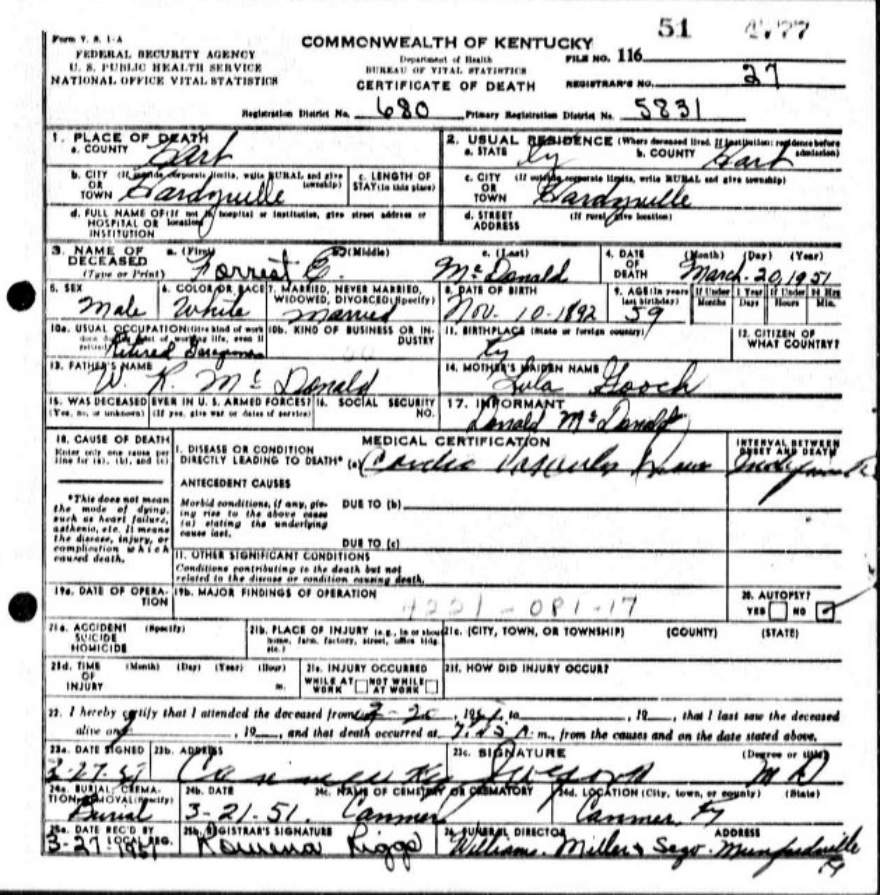 51
Form V. S. 1-A
FEDERAL SECURITY AGENCY
U. S. PUBLIC HEALTH SERVICE
NATIONAL OFFICE VITAL STATISTICS
COMMONWEALTH OF KENTUCKY
Department of Health
BUREAU OF VITAL STATISTICS
CERTIFICATE OF DEATH
FILE NO. 116
REGISTRAR'S NO. 27
Registration District No. 680 Primary Registration District No. 5831
1. PLACE OF DEATH
a. COUNTY Hart
2. USUAL RESIDENCE (Where deceased lived. If institution: residence before admission)
a. STATE Ky b. COUNTY Hart
b. CITY OR TOWN (If outside corporate limits, write RURAL and give township) Hardyville
c. LENGTH OF STAY (in this place)
c. CITY OR TOWN (If outside corporate limits, write RURAL and give township) Hardyville
d. FULL NAME OF HOSPITAL OR INSTITUTION (If not in hospital or institution, give street address or location)
d. STREET ADDRESS (If rural, give location)
3. NAME OF DECEASED (Type or Print)
a. (First) Forrest b. (Middle) E. c. (Last) McDonald
4. DATE OF DEATH (Month) (Day) (Year) March. 20, 1951
5. SEX Male
6. COLOR OR RACE White
7. MARRIED, NEVER MARRIED, WIDOWED, DIVORCED (Specify) Married
8. DATE OF BIRTH Nov. 10-1892
9. AGE (In years last birthday) 59 If Under 1 Year Months Days If Under 24 Hrs Hours Min.
10a. USUAL OCCUPATION (Give kind of work done during most of working life, even if retired) Retired
10b. KIND OF BUSINESS OR INDUSTRY
11. BIRTHPLACE (State or foreign country) Ky
12. CITIZEN OF WHAT COUNTRY?
13. FATHER'S NAME W. K. McDonald
14. MOTHER'S MAIDEN NAME Lula Gooch
15. WAS DECEASED EVER IN U. S. ARMED FORCES? (Yes, no, or unknown) (If yes, give war or dates of service)
16. SOCIAL SECURITY NO.
17. INFORMANT Donald McDonald
18. CAUSE OF DEATH
Enter only one cause per line for (a), (b), and (c)
*This does not mean the mode of dying, such as heart failure, asthenia, etc. It means the disease, injury, or complication which caused death.
MEDICAL CERTIFICATION
INTERVAL BETWEEN ONSET AND DEATH
I. DISEASE OR CONDITION DIRECTLY LEADING TO DEATH* (a) Cardio Vascular
ANTECEDENT CAUSES
Morbid conditions, if any, giving rise to the above cause (a) stating the underlying cause last.
DUE TO (b)
DUE TO (c)
II. OTHER SIGNIFICANT CONDITIONS
Conditions contributing to the death but not related to the disease or condition causing death.
19a. DATE OF OPERATION
19b. MAJOR FINDINGS OF OPERATION
4221-081-17
20. AUTOPSY? YES NO
21a. ACCIDENT SUICIDE HOMICIDE (Specify)
21b. PLACE OF INJURY (e.g., in or about home, farm, factory, street, office bldg. etc.)
21c. (CITY, TOWN, OR TOWNSHIP) (COUNTY) (STATE)
21d. TIME OF INJURY (Month) (Day) (Year) (Hour) m.
21e. INJURY OCCURRED WHILE AT WORK NOT WHILE AT WORK
21f. HOW DID INJURY OCCUR?
22. I hereby certify that I attended the deceased from 19 to , 19 , that I last saw the deceased
alive on , 19 , and that death occurred at m., from the causes and on the date stated above.
23a. DATE SIGNED 3-27-51
23b. ADDRESS Canmer Ky
23c. SIGNATURE (Degree or title) M D
24a. BURIAL, CREMATION, REMOVAL (Specify) Burial
24b. DATE 3-21-51.
24c. NAME OF CEMETERY OR CREMATORY Canmer
24d. LOCATION (City, town, or county) (State) Canmer, Ky
25a. DATE REC'D BY LOCAL REG. 3-27-1951
25b. REGISTRAR'S SIGNATURE Rowena Riggs
26. FUNERAL DIRECTOR ADDRESS Williams. Miller & Sego. Munfordville Ky